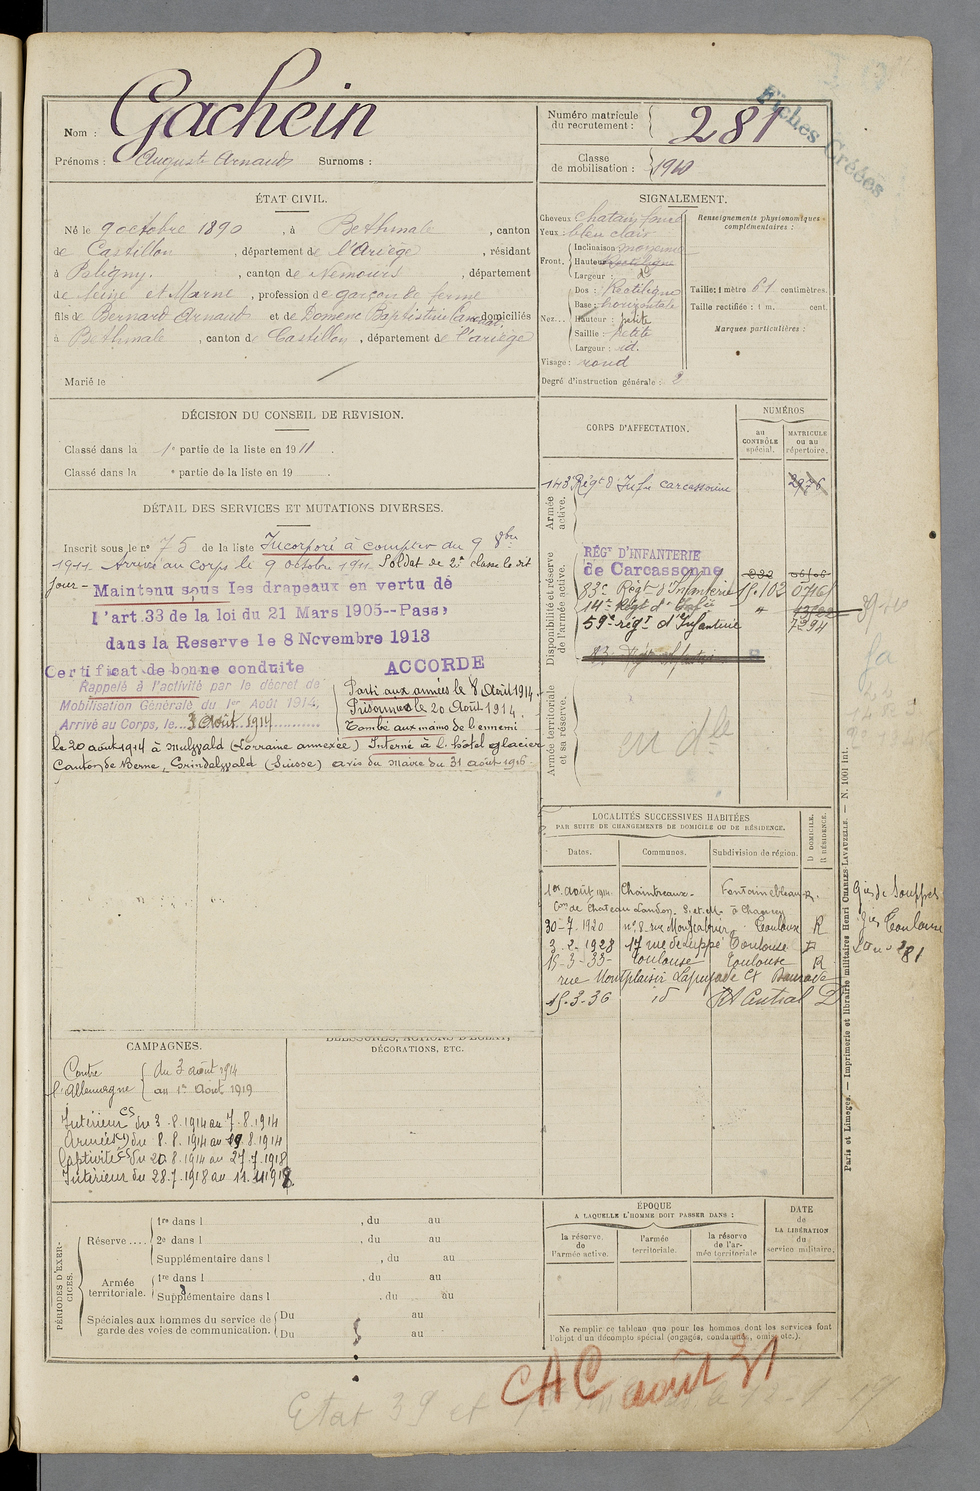 Fiches Créées
Nom : Gachein
Prénoms : Auguste Arnaud Surnoms :
Numéro matricule du recrutement : 281
Classe de mobilisation : 1910
ÉTAT CIVIL.
Né le 9 octobre 1890, à Bethmale, canton
de Castillon, département de l'Ariège, résidant
à Paligny., canton de Nemours, département
de Seine et Marne, profession de garçon de ferme
fils de Bernard Arnaud et de Domenc Baptistine domiciliés
à Bethmale, canton de Castillon, département de l'ariège
Marié le
SIGNALEMENT.
Cheveux chatain foncé
Yeux : bleu clair
Front. Inclinaison moyenne
Hauteur
Largeur : d°
Nez... Dos : Rectiligne
Base : horizontale
Hauteur : petite
Saillie : petite
Largeur : id.
Visage : rond
Degré d'instruction générale : 2
Renseignements physionomiques complémentaires :
Taille : 1 mètre 61 centimètres.
Taille rectifiée : 1 m. cent.
Marques particulières :
DÉCISION DU CONSEIL DE REVISION.
Classé dans la 1e partie de la liste en 1911.
Classé dans la e partie de la liste en 19
DÉTAIL DES SERVICES ET MUTATIONS DIVERSES.
Inscrit sous le n° 75 de la liste Incorporé à compter du 9 8bre
1911. Arrivé au corps le 9 octobre 1911. Soldat de 2e classe le dit
jour - Maintenu sous les drapeaux en vertu de
l'art.33 de la loi du 21 Mars 1905--Passé
dans la Reserve le 8 Novembre 1913
Certificat de bonne conduite ACCORDE
Rappelé à l'activité par le décret de
Mobilisation Générale du 1er Août 1914,
Arrivé au Corps, le 3 Août 1914
Parti aux armées le 8 Août 1914.
Prisonnier le 20 Août 1914.
Tombé aux mains de l'ennemi
le 20 août 1914 à Mulwald (Lorraine annexée) Interné à l. hôtel glacier
Canton de Berne, Grindelwald (Suisse) avis du Maire du 31 août 1916
CORPS D'AFFECTATION.
NUMÉROS
au CONTRÔLE spécial.
MATRICULE ou au répertoire.
Armée active.
143 Régt d'Infie Carcassonne 2976
Disponibilité et réserve de l'armée active.
RÉGT D'INFANTERIE
de Carcassonne
83e Régt d'Infanterie 15.102 05716
14e Régt d'Infie
59e régt d'Infanterie 7394
Armée territoriale et sa réserve.
LOCALITÉS SUCCESSIVES HABITÉES
PAR SUITE DE CHANGEMENTS DE DOMICILE OU DE RÉSIDENCE.
Dates. Communes. Subdivision de région. D DOMICILE. R RÉSIDENCE.
1er août 1914. Chaintreaux. Fontainebleau R.
Con de Chateau Landon. S. et M.
30-7-1920 n° 8 rue Montcabrier Toulouse R
3-2-1928 17 rue de Cuppé Toulouse D
15-3-33 Toulouse Toulouse R
rue Montplaisir
15-3-36 id Central D
CAMPAGNES.
Contre l'Allemagne du 3 août 1914
au 1er Août 1919
Intérieur CS du 3.8.1914 au 7.8.1914
Armées du 8.8.1914 au 19.8.1914
Captivité CS du 20.8.1914 au 27.7.1918
Intérieur du 28.7.1918 au 11.11.1918
BLESSURES, ACTIONS D'ÉCLAT,
DÉCORATIONS, ETC.
PÉRIODES D'EXERCICES.
Réserve .... 1re dans l , du au
2e dans l , du au
Supplémentaire dans l , du au
Armée territoriale. 1re dans l , du au
Supplémentaire dans l , du au
Spéciales aux hommes du service de garde des voies de communication. Du au
Du au
ÉPOQUE
A LAQUELLE L'HOMME DOIT PASSER DANS :
la réserve de l'armée active.
l'armée territoriale.
la réserve de l'armée territoriale
DATE de LA LIBÉRATION du service militaire.
Ne remplir ce tableau que pour les hommes dont les services font
l'objet d'un décompte spécial (engagés, condamnés, omis, etc.).
Paris et Limoges. — Imprimerie et librairie militaires Henri CHARLES-LAVAUZELLE. — N. 1001 Int.
Toulouse
281
CAC août 31
Etat 39 et